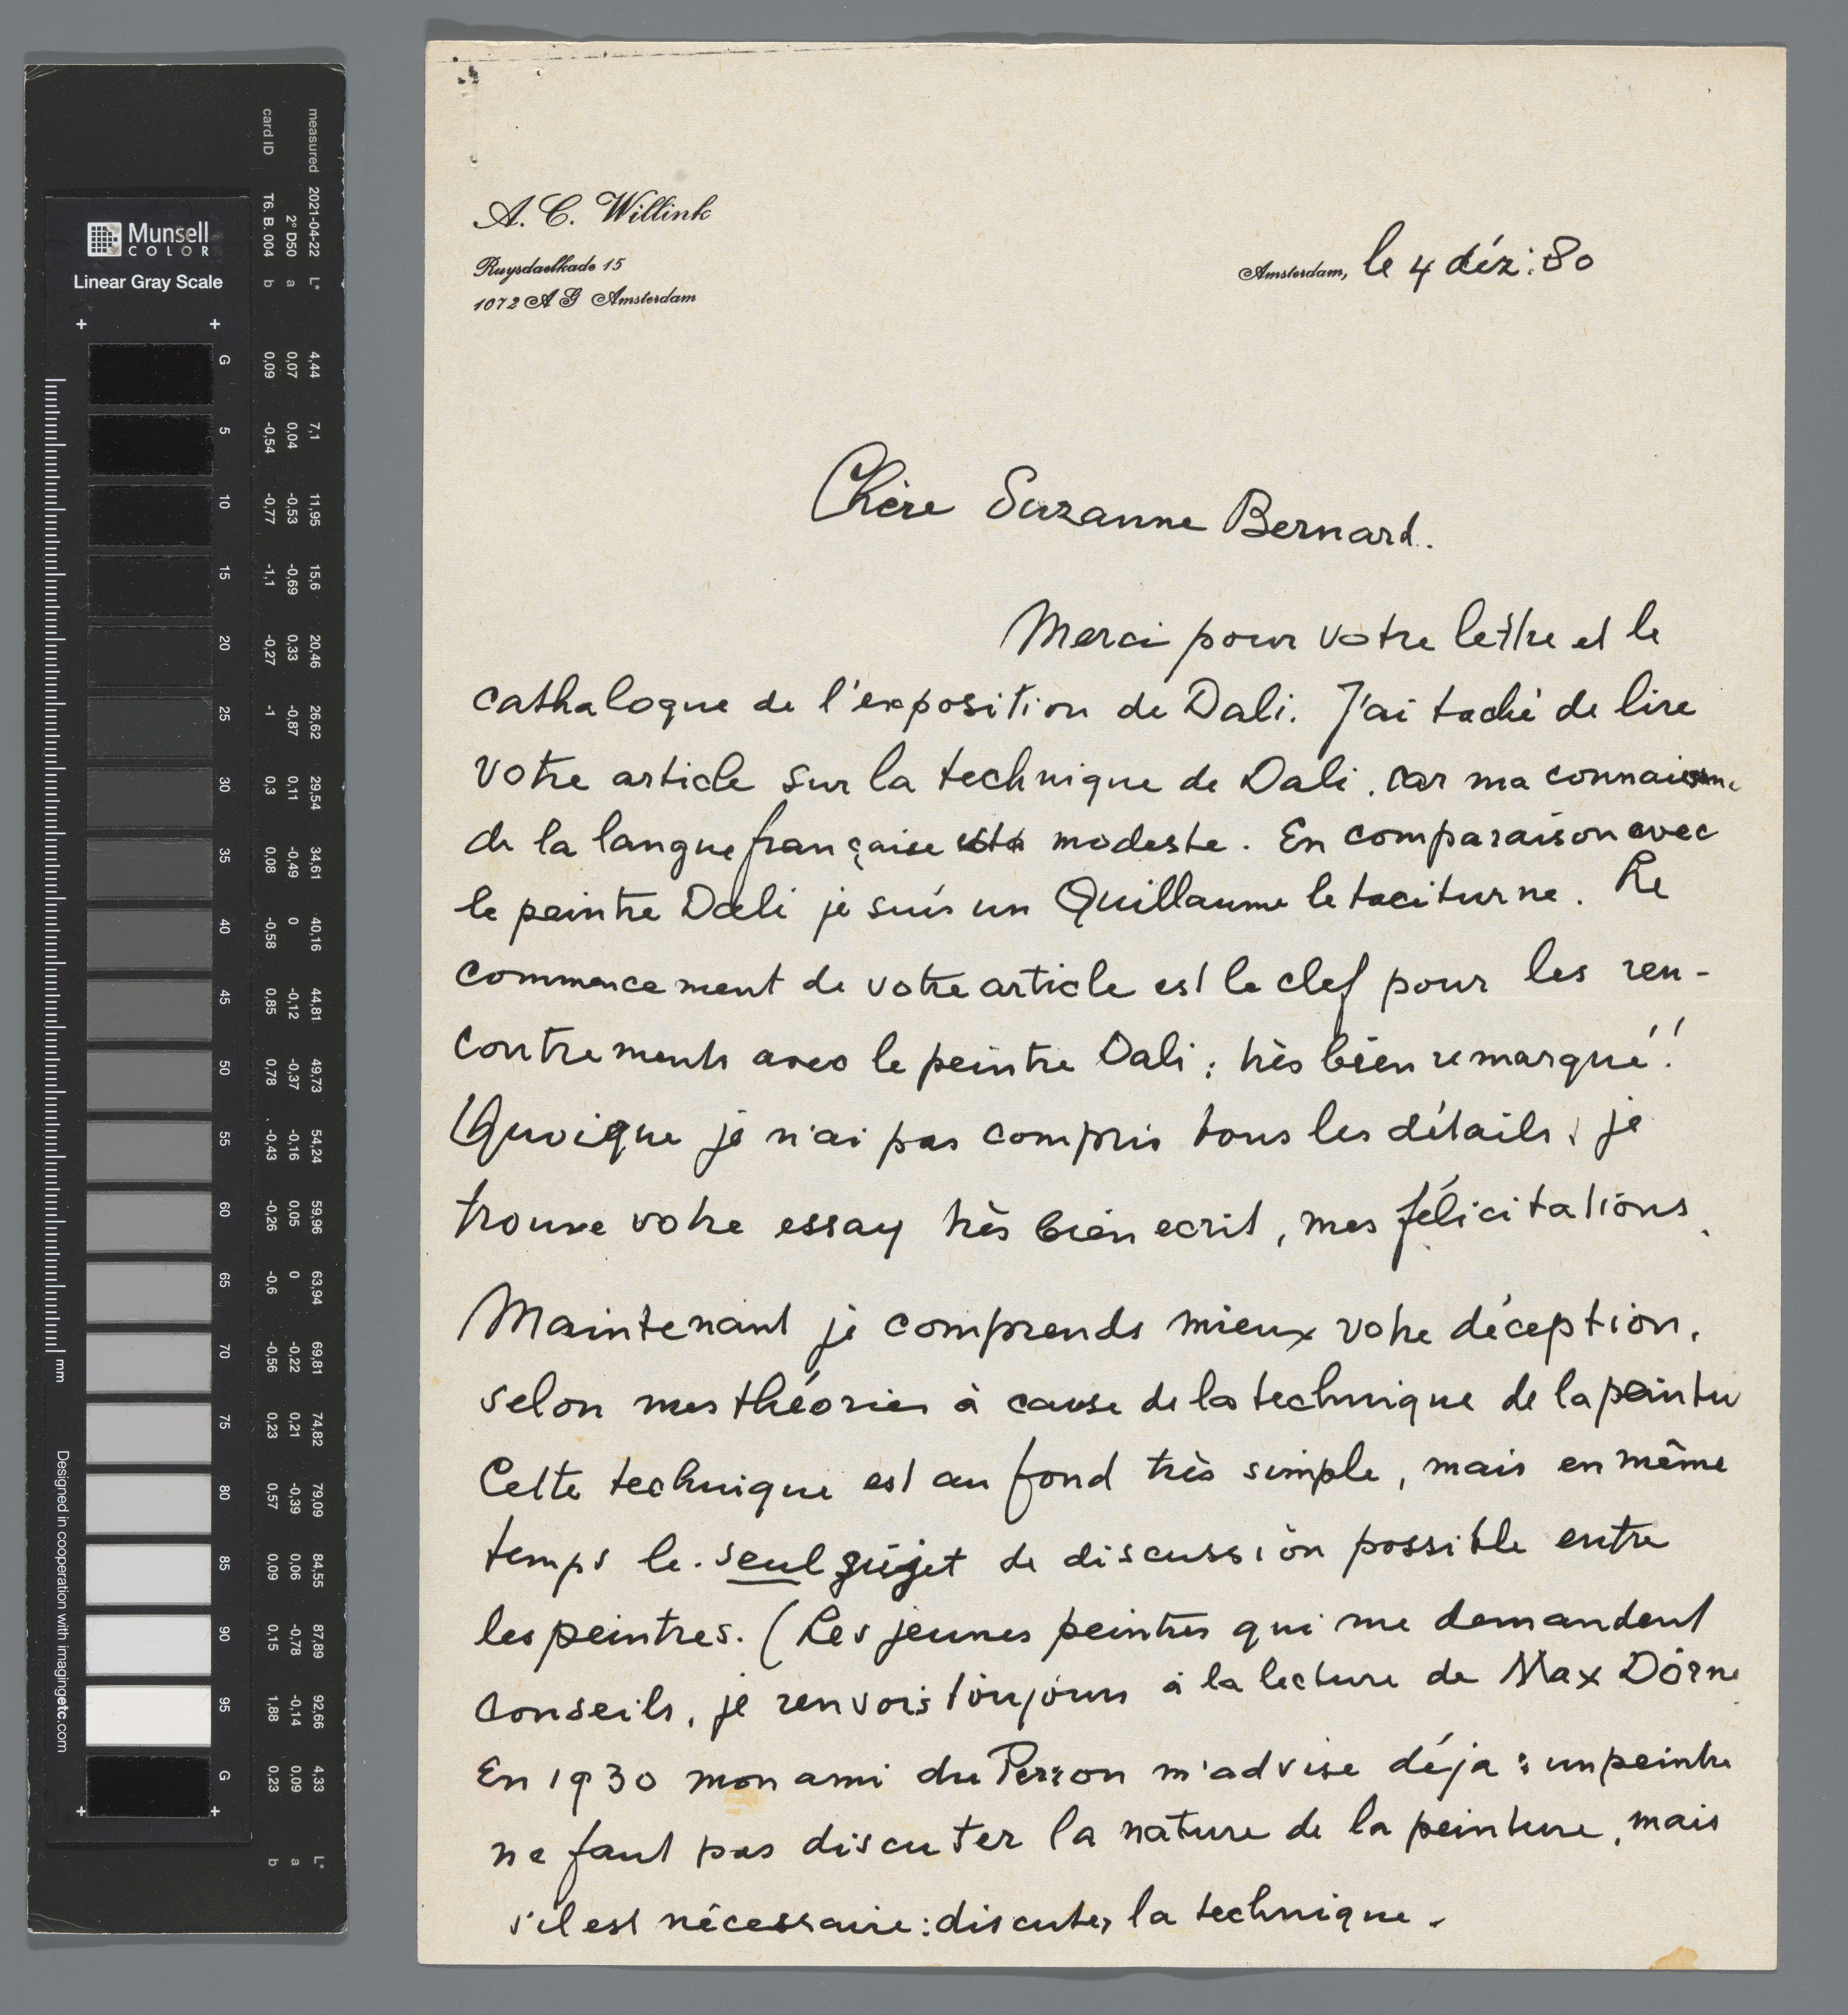 A. C. Willink
Ruysdaelkade 15
1072 A G Amsterdam
Amsterdam, le 4 déz: 80
Chère Suzanne Bernard.
Merci pour votre lettre et le
cathalogue de l'exposition de Dali. J'ai taché de lire
votre article sur la technique de Dali, car ma
de la langue française modeste. En comparaison avec
le peintre Dali je suis un Guillaume le taciturne. Le
commencement de votre article est le clef pour les ren-
contrements avec le peintre Dali; très bien remarqué!
Quoique je n'ai pas compris tous les détails, je
trouve votre essay très bien ecrit, mes félicitations.
Maintenant je comprends mieux votre déception,
selon mes théories à cause de la technique de la peintu
Cette technique est au fond très simple, mais en même
temps le seul sujet de discussion possible entre
les peintres. (Les jeunes peintres qui me demandent
conseils, je renvois toujours à la lecture de Max Dörne
En 1930 mon ami du Perron m'advise déja: un peintre
ne faut pas discuter la nature de la peinture, mais
s'il est nécessaire: discuter la technique.
Munsell
COLOR
Linear Gray Scale
measured 2021-04-22 L*
2° D50 a
card ID T6. B. 004 b
G 4,44 0,07 0,09
5 7,1 0,04 -0,54
10 11,95 -0,53 -0,77
15 15,6 -0,69 -1,1
20 20,46 0,33 -0,27
25 26,62 -0,87 -1
30 29,54 0,11 0,3
35 34,61 -0,49 0,08
40 40,16 0 -0,58
45 44,81 -0,12 0,85
50 49,73 -0,37 0,78
55 54,24 -0,16 -0,43
60 59,96 0,05 -0,26
65 63,94 0 -0,6
70 69,81 -0,22 -0,56
75 74,82 0,21 0,23
80 79,09 -0,39 0,57
85 84,55 0,06 0,09
90 87,89 -0,78 0,15
95 92,66 -0,14 1,88
G 4,33 0,09 0,23
L* a b
mm
Designed in cooperation with imagingetc.com